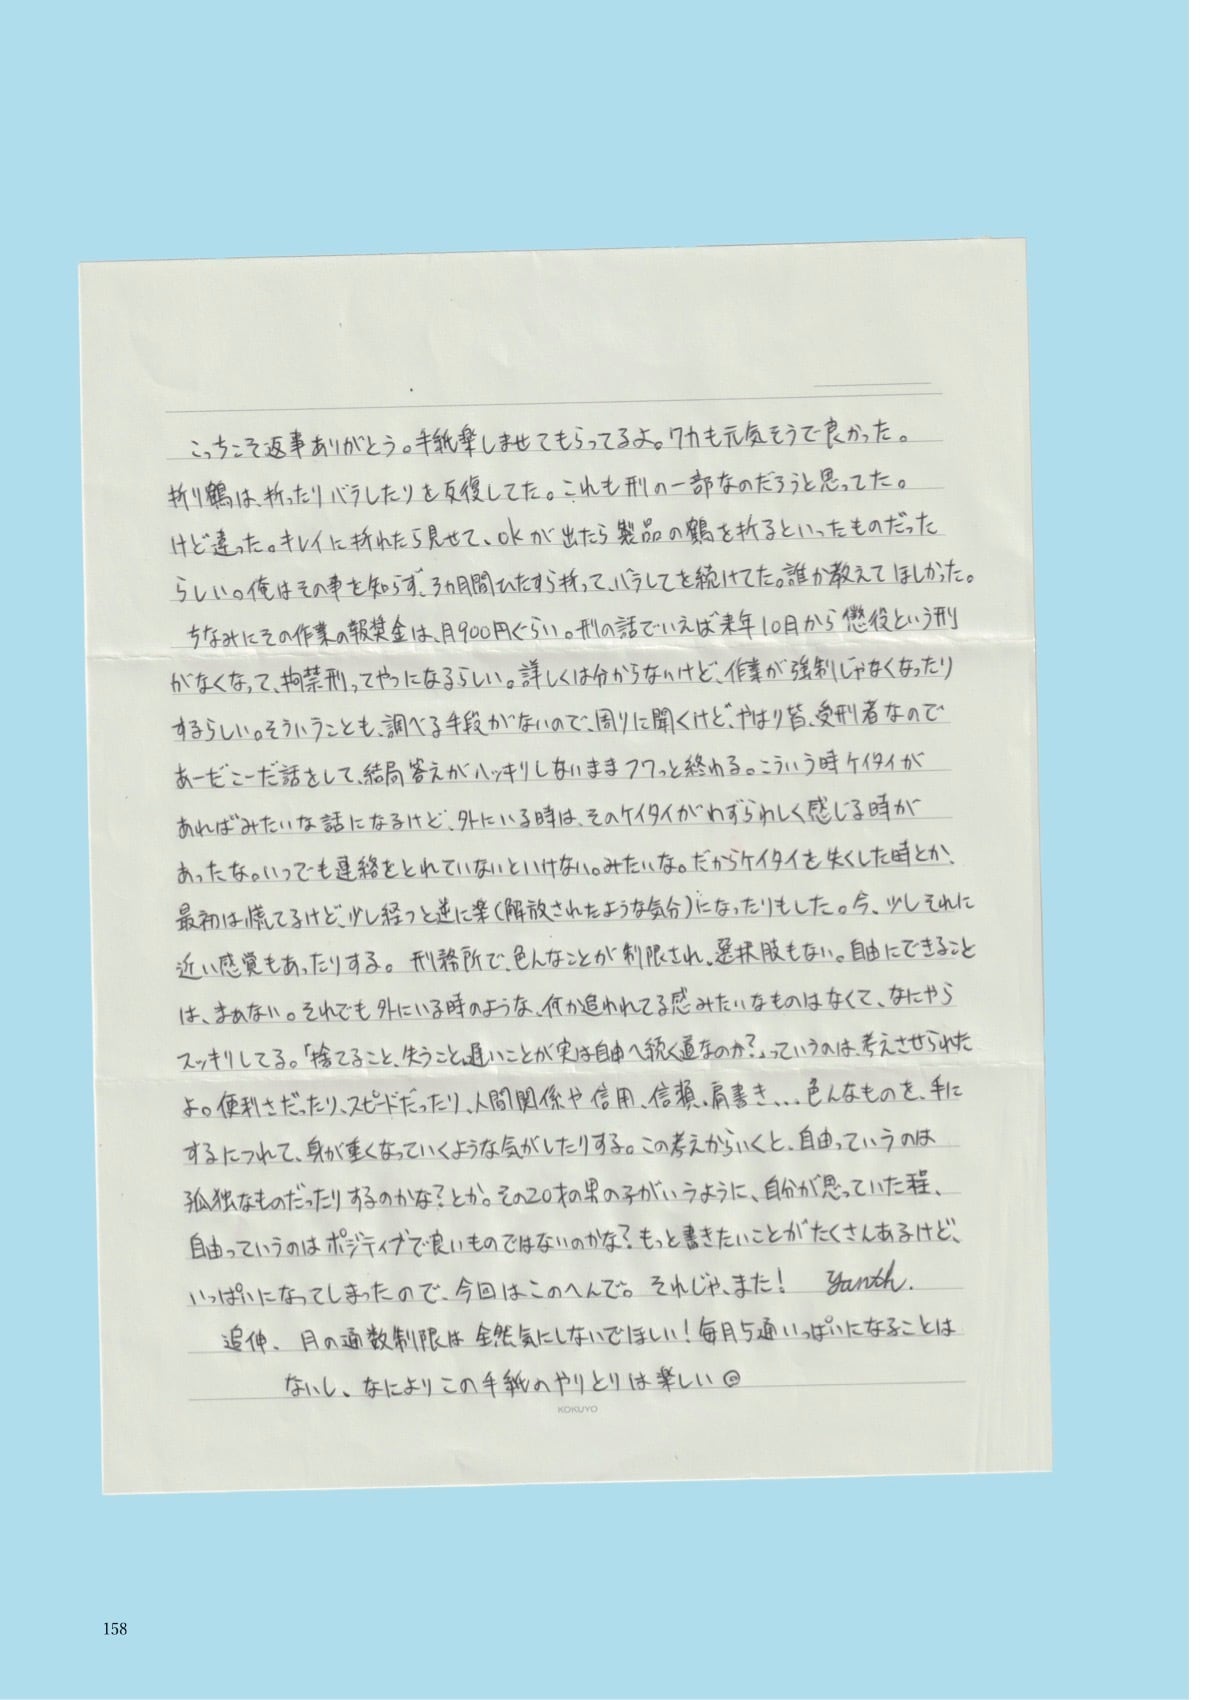 こっちこそ返事ありがとう。手紙楽しませてもらってるよ。ワカも元気そうで良かった。
折り鶴は、折ったりバラしたりを反復してた。これも刑の一部なのだろうと思ってた。
けど違った。キレイに折れたら見せて、okが出たら製品の鶴を折るといったものだった
らしい。俺はその事を知らず、3ヵ月間ひたすら折って、バラしてを続けてた。誰か教えてほしかった。
ちなみにその作業の報奨金は、月900円ぐらい。刑の話でいえば来年10月から懲役という刑
がなくなって、拘禁刑ってやつになるらしい。詳しくは分からないけど、作業が強制じゃなくなったり
するらしい。そういうことも、調べる手段がないので、周りに聞くけど、やはり皆、受刑者なので
あーだこーだ話をして、結局答えがハッキリしないままフワっと終わる。こういう時ケイタイが
あればみたいな話になるけど、外にいる時は、そのケイタイがわずらわしく感じる時が
あったな。いつでも連絡をとれていないといけない。みたいな。だからケイタイを失くした時とか、
最初は慌てるけど、少し経つと逆に楽(解放されたような気分)になったりもした。今、少しそれに
近い感覚もあったりする。刑務所で、色んなことが制限され、選択肢もない。自由にできること
は、まぁない。それでも外にいる時のような、何か追われてる感みたいなものはなくて、なにやら
スッキリしてる。「捨てること、失うこと、遅いことが実は自由へ続く道なのか?」っていうのは、考えさせられた
よ。便利さだったり、スピードだったり、人間関係や信用、信頼、肩書き、、、色んなものを、手に
するにつれて、身が重くなっていくような気がしたりする。この考えからいくと、自由っていうのは
孤独なものだったりするのかな?とか。その20才の男の子がいうように、自分が思っていた程、
自由っていうのはポジティブで良いものではないのかな?もっと書きたいことがたくさんあるけど、
いっぱいになってしまったので、今回はこのへんで。それじゃ、また!
追伸、月の通数制限は全然気にしないでほしい!毎月5通いっぱいになることは
ないし、なによりこの手紙のやりとりは楽しい
KOKUYO
158